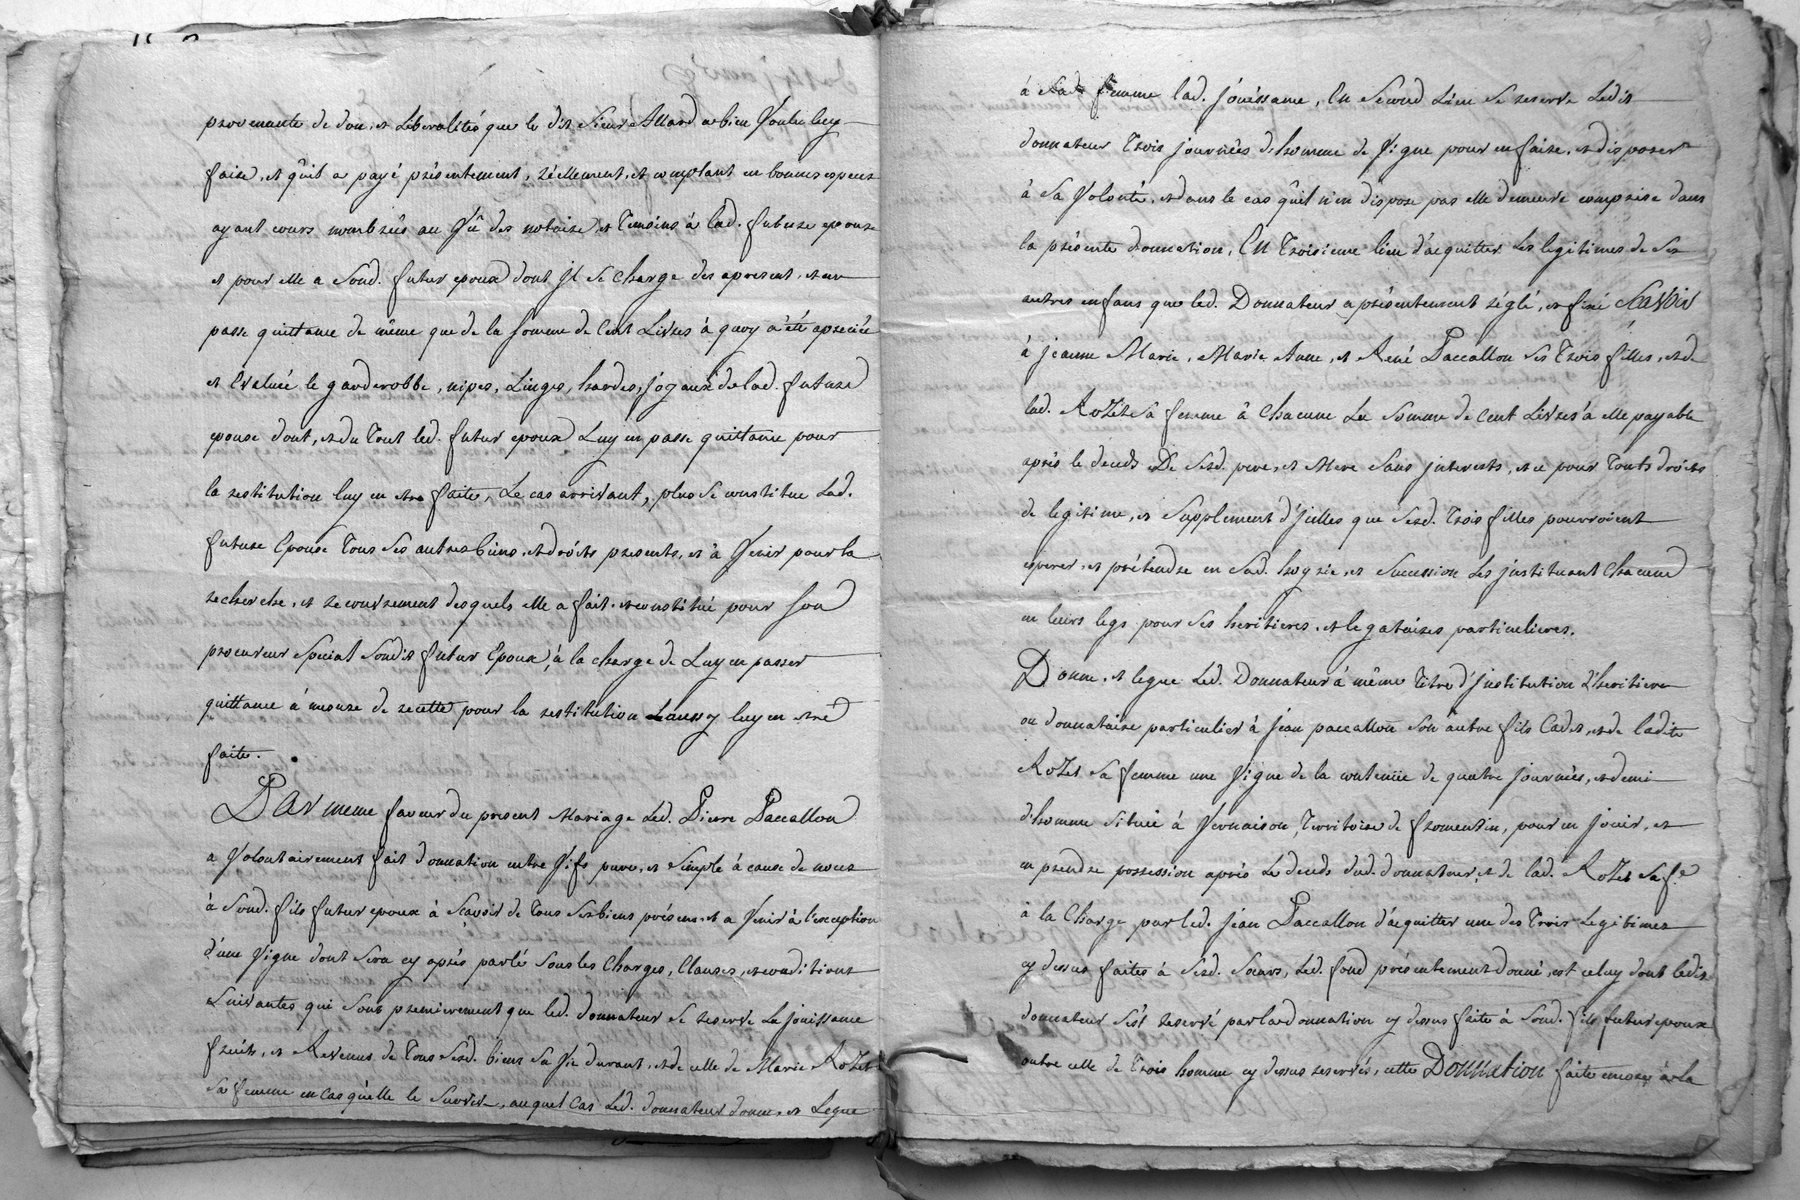 provenante de don, et Liberalités que le dit Sieur Allard a bien Voulu luy
faire, et qu'il a payé présentement, réellement, et comptant en bonnes especes
ayant cours nombrées au Vû des notaire et Temoins à lad. future epouse
et pour elle a Sond. futur epoux dont Il Se Charge des apresent, et en
passe quittance de même que de la Somme de Cent Livres à quoy a été apreciée
et Evaluée le garderobbe, nipes, Linges, hardes, joyaux de lad. future
epouse dont, et du Tout led. futur epoux Luy en passe quittance pour
la restitution luy en etre faite, Le cas arrivant, plus Se constitue Lad.
future Epouse Tous Ses autres biens, et droits presents, et à Venir pour la
recherche, et recouvrement desquels elle a fait, et constitué pour Son
procureur Special Sondit futur Epoux, à la charge de Luy en passer
quittance à mesure de recette pour la restitution aussy luy en etre
faite.
Par meme faveur du present Mariage Led. Pierre Paccallon
a Volontairement fait donnation entre Vifs pure, et Simple à cause de noces
à Sond. fils futur epoux à Scavoir de Tous Ses biens présens, et a Venir à l'exception
d'une Vigne dont Sera cy après parlé Sous les Charges, Clauses, et conditions
Suivantes qui Sont premièrement que led. donnateur Se reserve La jouissance
fruits, et Revenus de Tous Sesd. biens Sa Vie durant, et de celle de Marie Rozet
Sa femme en cas qu'elle le Survive, auquel Cas Led. donnateur donne, et Legue
à Sad. femme lad. jouissance, En Second Lieu Se reserve Ledit
donnateur Trois journées d'homme de Vigne pour en faire, et disposer
à Sa Volonté, et dans le cas qu'il n'en dispose pas elle demeure comprise dans
la présente donnation, En Troisieme lieu d'acquitter Les legitimes de Ses
autres enfans que led. Donnateur a présentement réglé, et fixé Scavoir
à jeanne Marie, Marie Anne, et René Paccallon Ses Trois filles, et de
lad. Rozet Sa femme à Chacune La Somme de Cent Livres à elle payable
après le deceds De Sesd. pere, et Mere Sans jnterests, et ce pour Touts droits
de legitime, et Supplement d'jcelles que Sesd. Trois filles pourroient
esperer, et prétendre en Sad. hoyrie, et Succession Les jnstituant Chacune
en leurs legs pour Ses heritieres, et legataires particulieres.
Donne, et legue Led. Donnateur à même Titre d'jnstitution d'heritier
ou donnataire particulier à jean paccallon Son autre fils Cadet, et de ladite
Rozet Sa femme une Vigne de la contenüe de quatre journées, et demi
d'homme Située à Vernaison, Territoire de fromentin, pour en jouir, et
en prendre possession après Le deceds dud. donnateur, et de lad. Rozet Sa fe.
à la Charge par led. jean Paccallon d'acquitter une des Trois Legitimes
cy dessus faites à Sesd. Soeurs, Led. fond présentement donné, est celuy dont ledit
donnateur S'est reservé par la donnation cy dessus faite à Sond. fils futur epoux
outre celle de Trois homme cy dessus reservés, cette Donnation faite encore à la